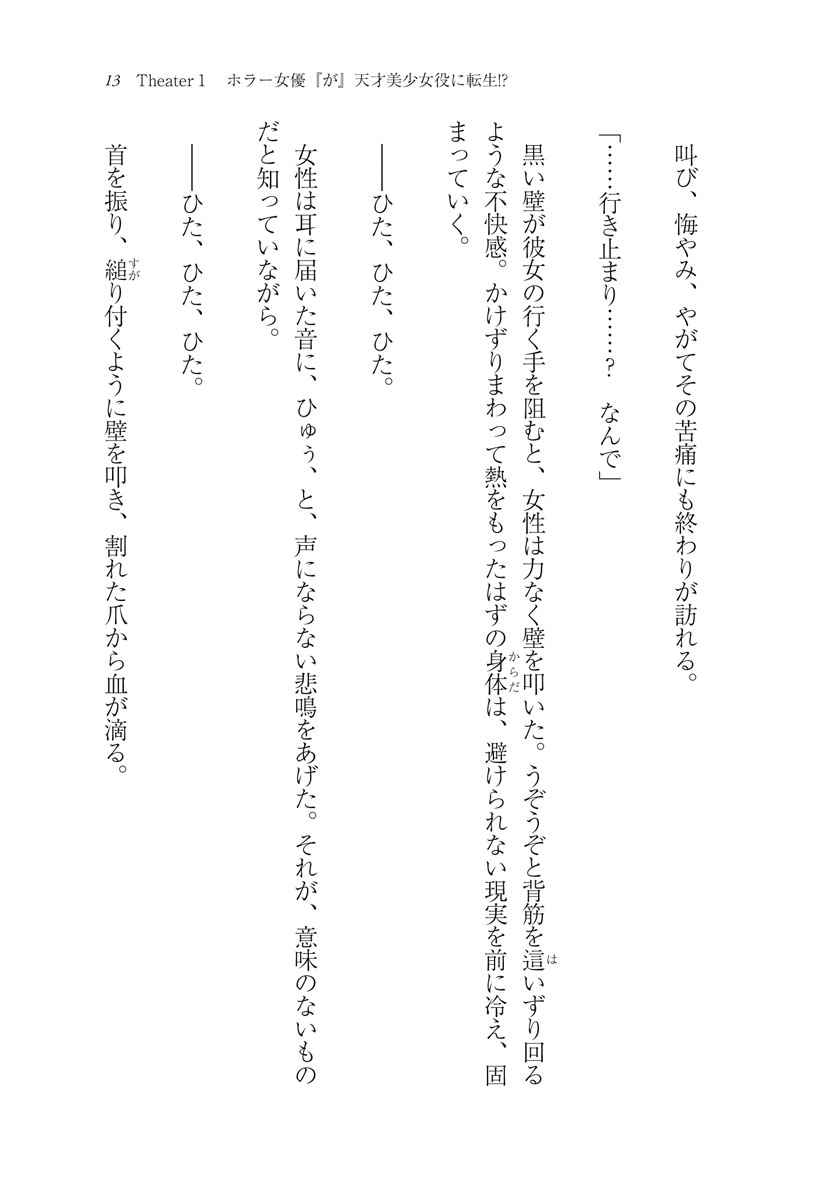 13 Theater 1 ホラー女優『が』天才美少女役に転生!?
叫び、悔やみ、やがてその苦痛にも終わりが訪れる。
「……行き止まり……? なんで」
黒い壁が彼女の行く手を阻むと、女性は力なく壁を叩いた。うぞうぞと背筋を這いずり回る
ような不快感。かけずりまわって熱をもったはずの身体は、避けられない現実を前に冷え、固
まっていく。
――ひた、ひた、ひた。
女性は耳に届いた音に、ひゅぅ、と、声にならない悲鳴をあげた。それが、意味のないもの
だと知っていながら。
――ひた、ひた、ひた。
首を振り、縋り付くように壁を叩き、割れた爪から血が滴る。